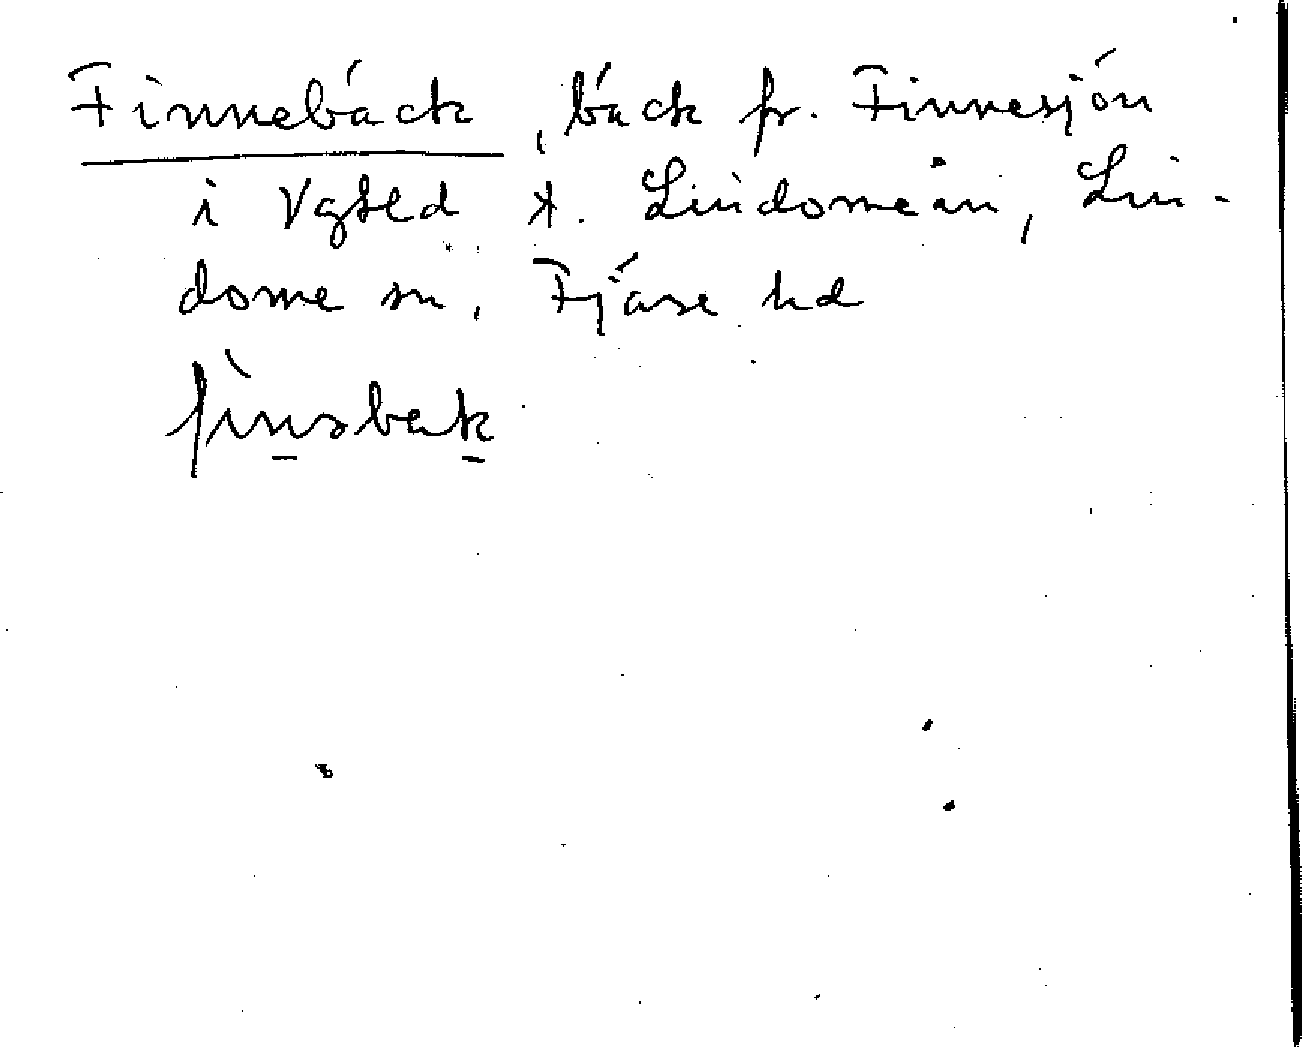 Finnebäck, bäck fr. Finnesjön
i Vgtld t. Lindomeån, Lin-
dome sn, Fjäre hd